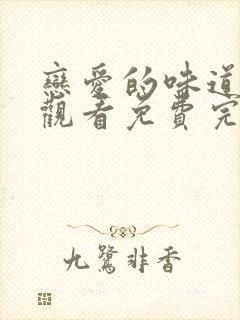 戀愛的味道
觀看免費完
九鷺非香